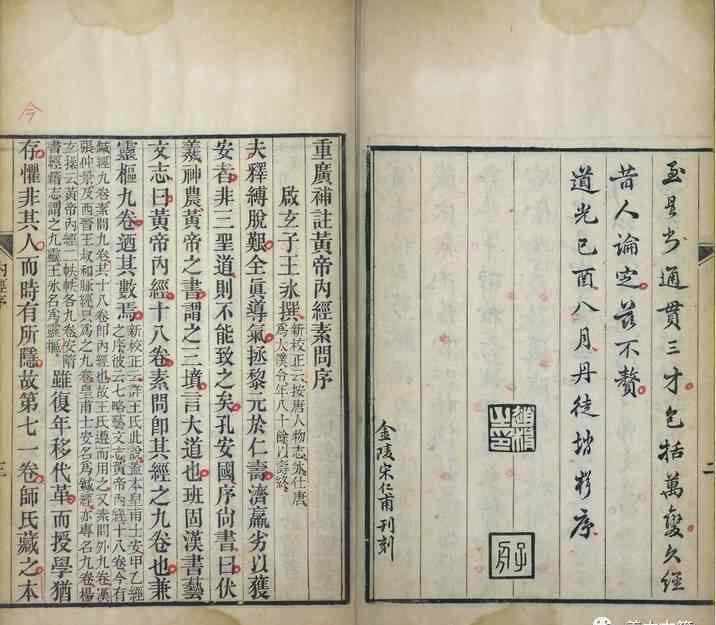 至是书通貫三才包括萬變久經
昔人論定茲不贅
道光己酉八月丹徒
序
金陵宋仁甫刊刻
二
今
重廣補註黃帝內經素問序
啟玄子王冰撰
新校正云按唐人物志冰仕唐
爲太僕令年八十餘以壽終
夫釋縛脫艱全眞導氣拯黎元於仁壽濟羸劣以獲
安者非三聖道則不能致之矣孔安國序尚書曰伏
羲神農黃帝之書謂之三墳言大道也班固漢書藝
文志曰黃帝內經十八卷素問卽其經之九卷也兼
靈樞九卷迺其數焉
新校正云詳王氏此說蓋本皇甫士安甲乙經
之序彼云七略藝文志黃帝內經十八卷今有
鍼經九卷素問九卷共十八卷卽內經也故王氏遵而用之又素問外九卷漢
張仲景及西晉王叔和脉經只爲之九卷皇甫士安名爲鍼經亦專名九卷楊
玄操云黃帝內經二帙帙各九卷按隋
書經籍志謂之九靈王冰名爲靈樞
雖復年移代革而授學猶
存懼非其人而時有所隱故第七一卷師氏藏之本
內經序
三